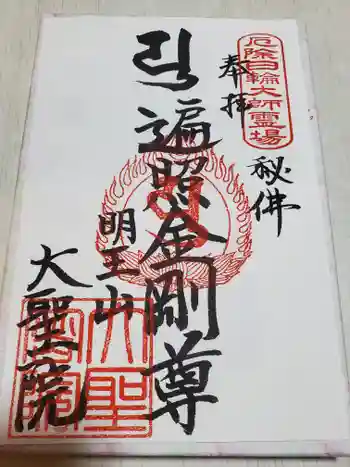 厄除日輪大師霊場
奉拝
秘佛
遍照金剛尊
明王山
大聖院
大聖密院